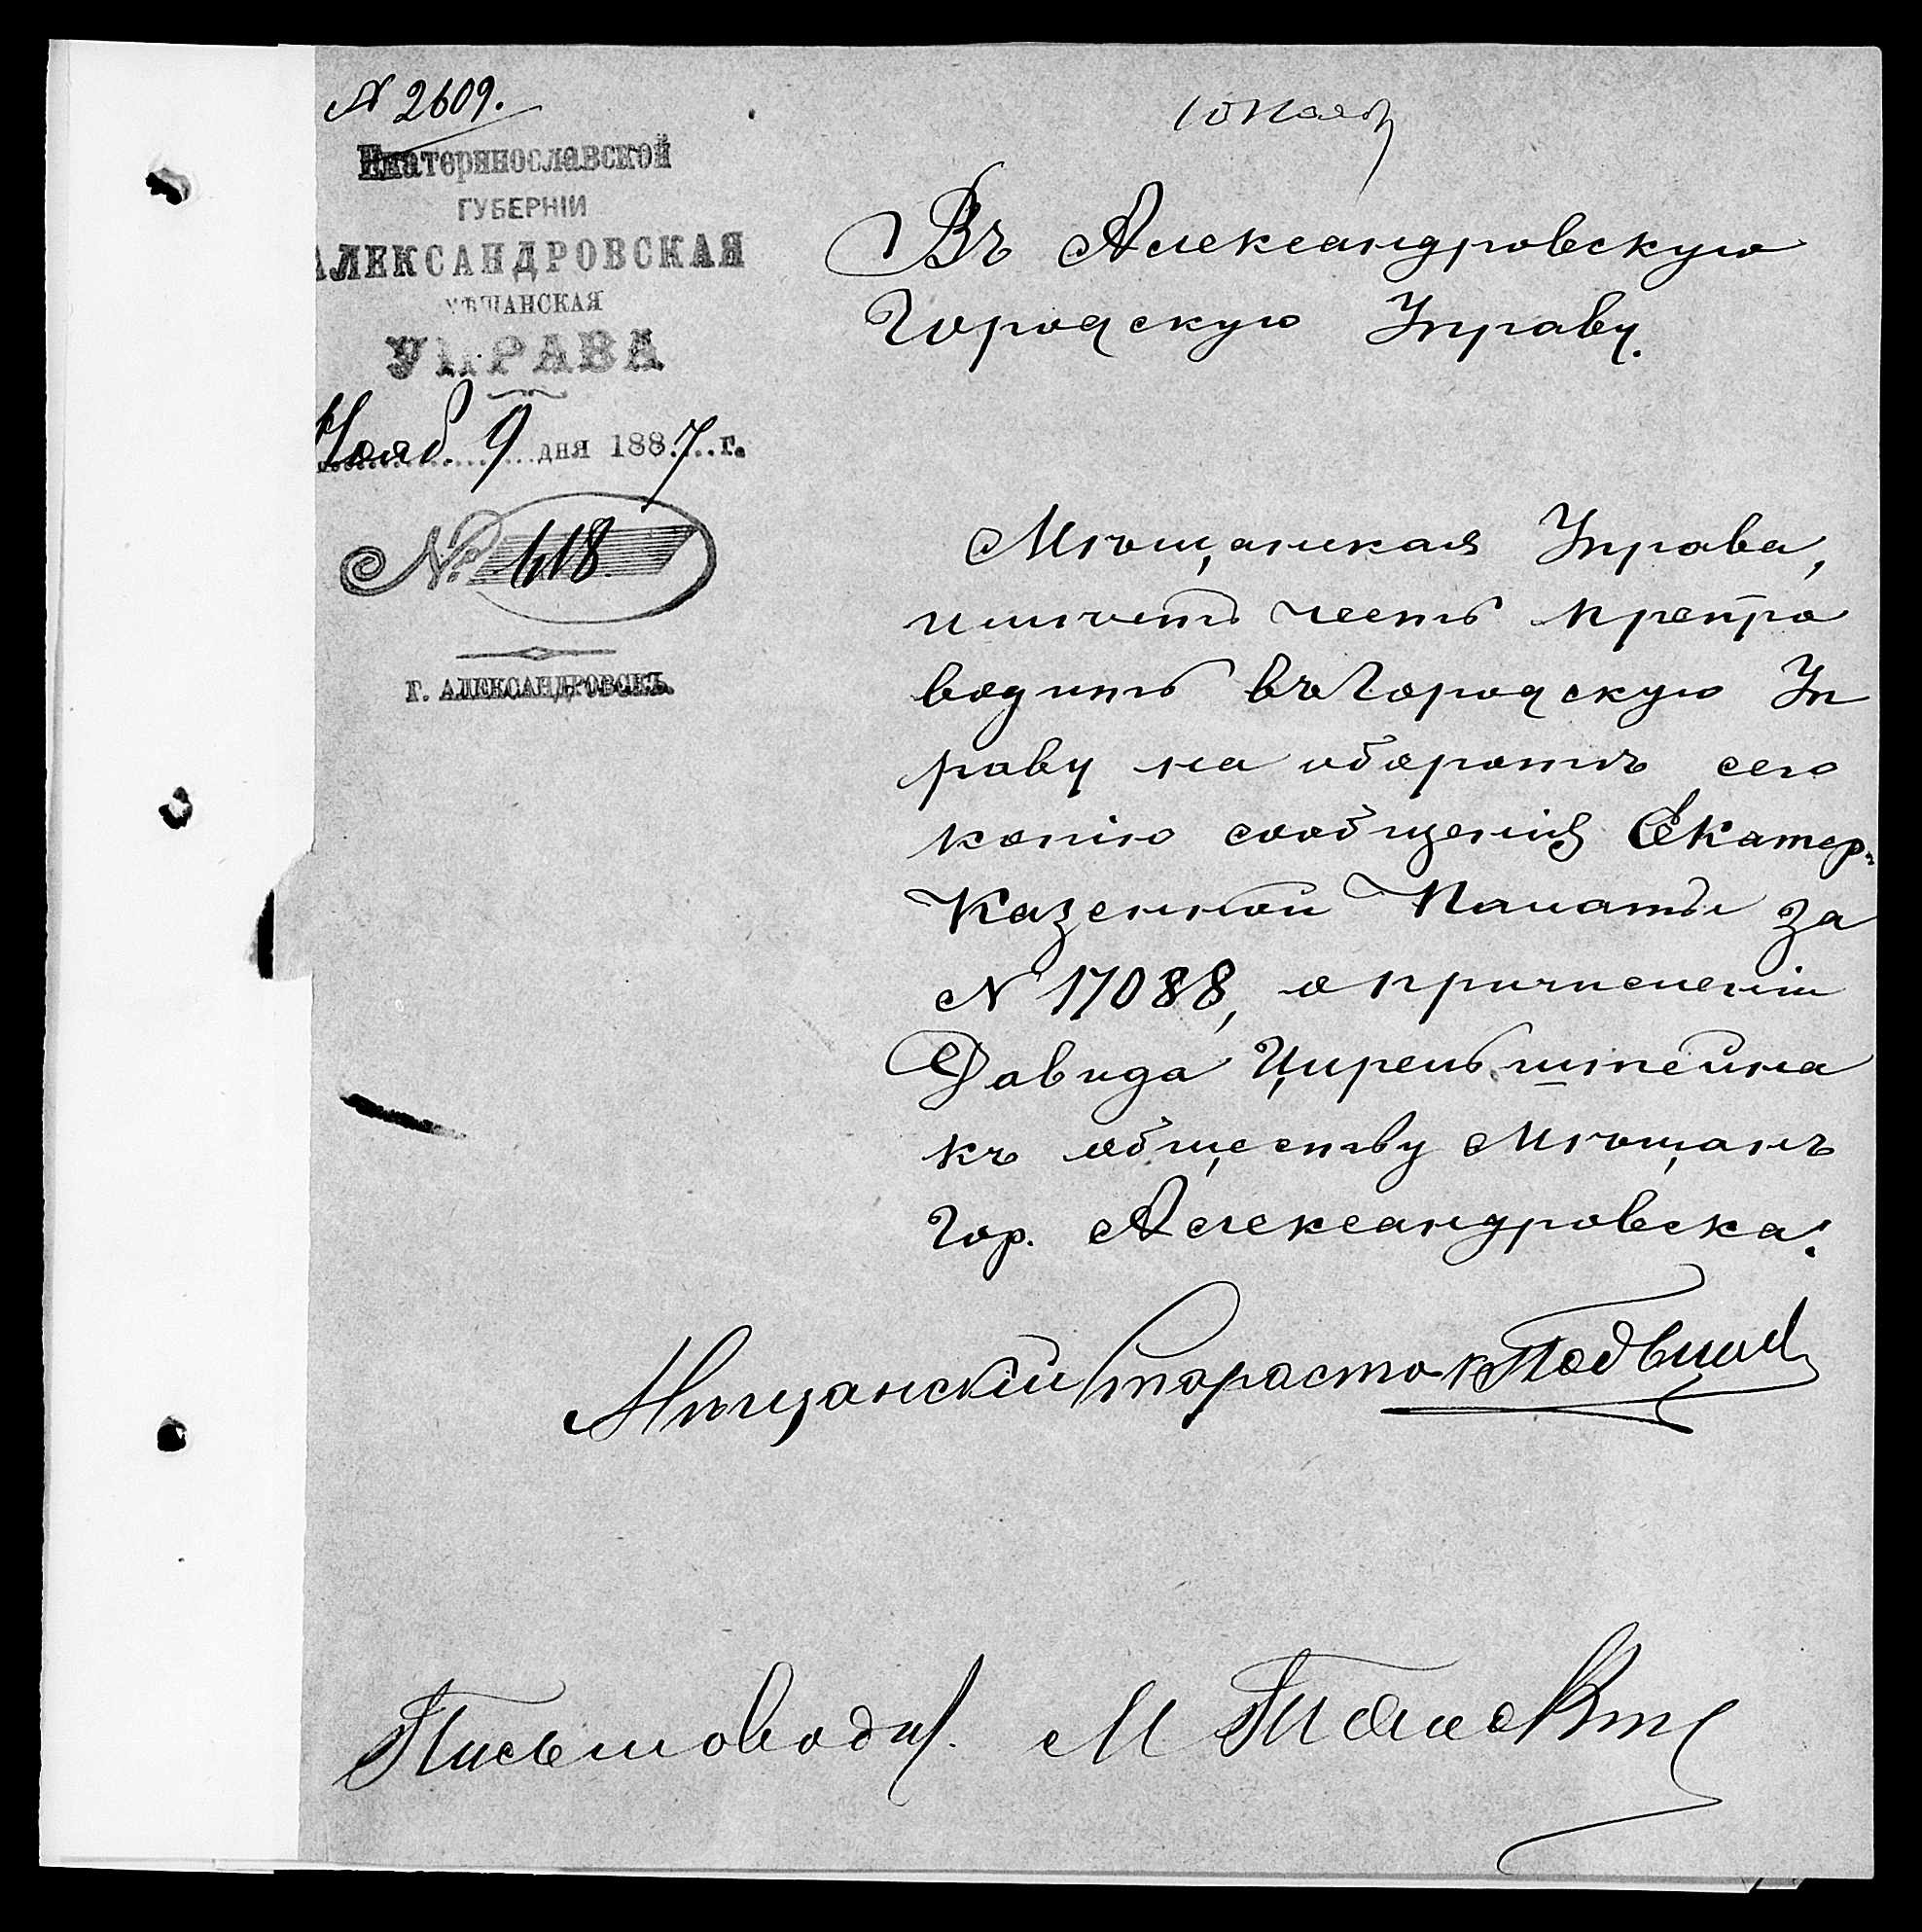 № 2609.
Екатеринославской
ГУБЕРНІИ
АЛЕКСАНДРОВСКАЯ
МѢЩАНСКАЯ
УПРАВА
Нояб. 9 дня 1887 г.
№ 418
Г. АЛЕКСАНДРОВСКЪ.
10 Нояб
Въ Александровскую
Городскую Управу.
Мѣщанская Управа,
имѣетъ честь препро
водить въ Городскую Уп
раву на оборотѣ сего
копію сообщенія Екатер.
Казенной Палаты за
№ 17088, о причисленіи
Давида Цирельштейна
къ обществу Мѣщанъ
Гор. Александровска.
Мѣщанскій Староста
Письмовод. М